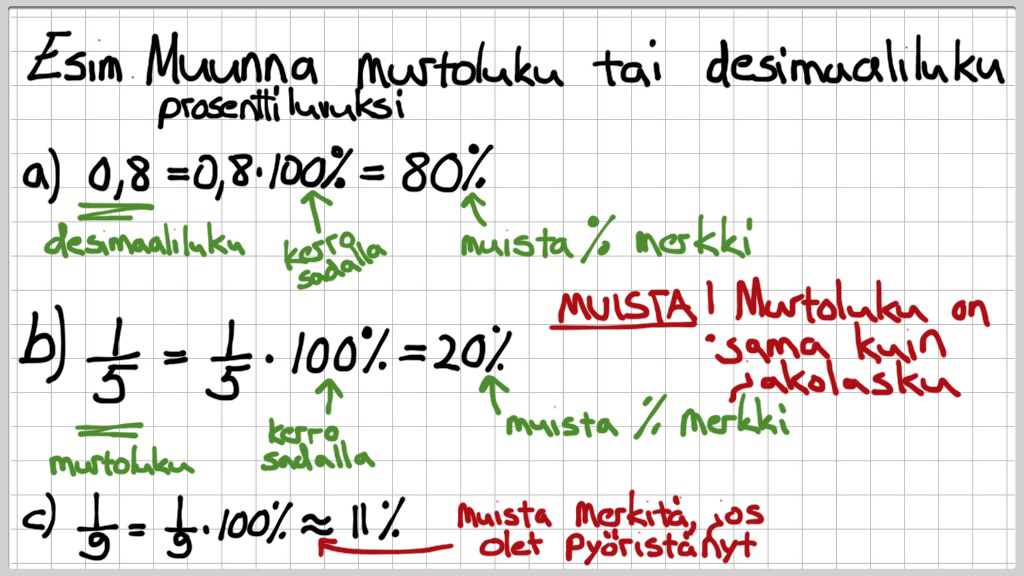 Esim. Muunna murtoluku tai desimaaliluku
prosenttiluvuksi
a) 0,8 = 0,8·100% = 80%
desimaaliluku
kerro
sadalla
muista % merkki
MUISTA! Murtoluku on
sama kuin
jakolasku
b) 1/5 = 1/5 · 100% = 20%
murtoluku
kerro
sadalla
muista % merkki
c) 1/9 = 1/9 · 100% ≈ 11%
Muista Merkitä, jos
olet Pyöristänyt